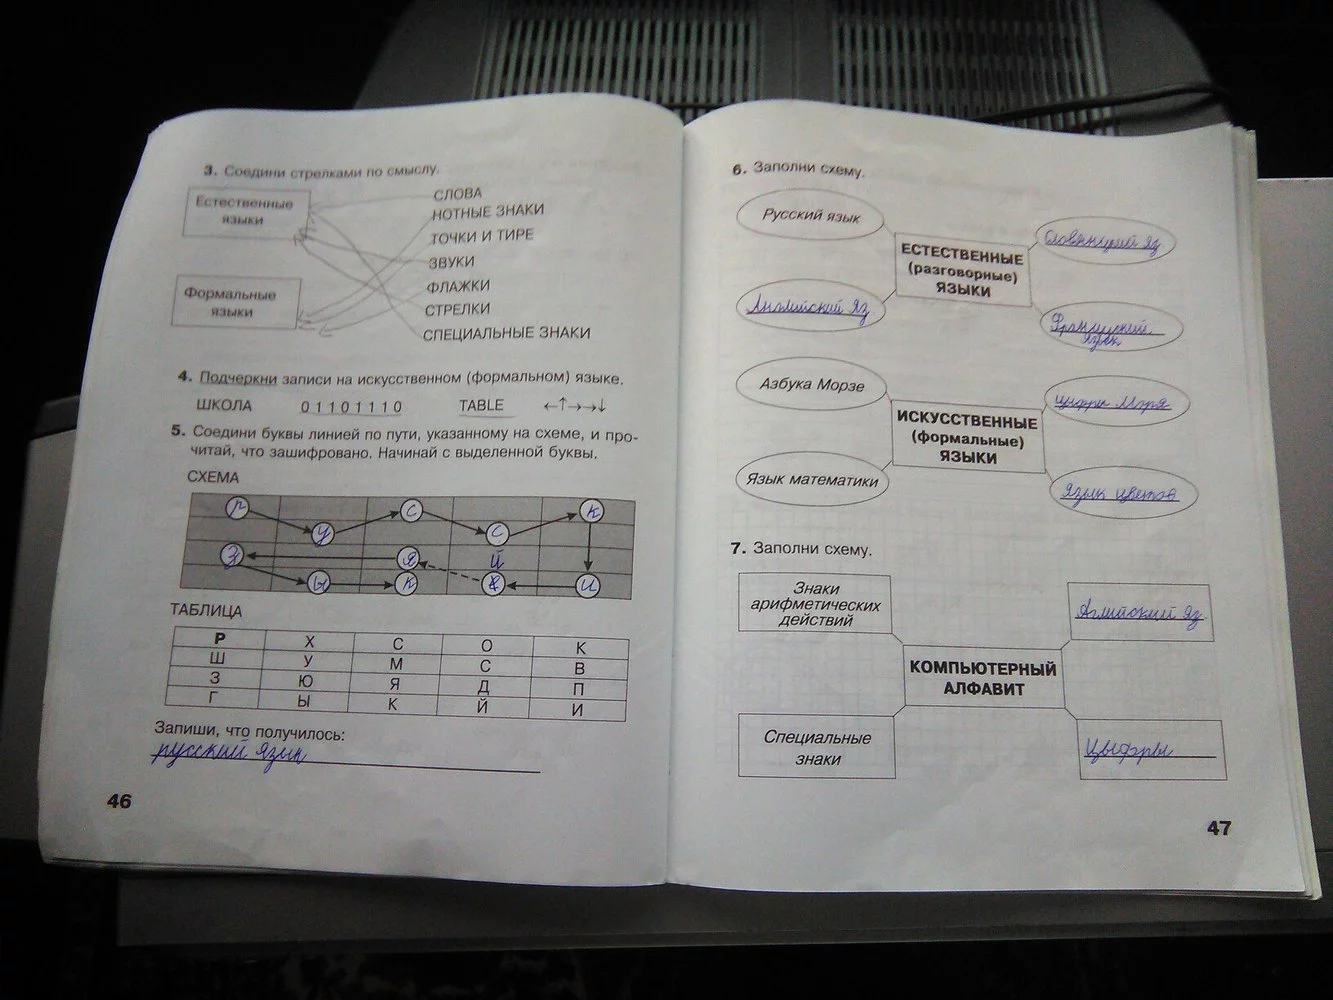 3. Соедини стрелками по смыслу.
Естественные
языки
Формальные
языки
СЛОВА
НОТНЫЕ ЗНАКИ
ТОЧКИ И ТИРЕ
ЗВУКИ
ФЛАЖКИ
СТРЕЛКИ
СПЕЦИАЛЬНЫЕ ЗНАКИ
4. Подчеркни записи на искусственном (формальном) языке.
ШКОЛА 0 1 1 0 1 1 1 0 TABLE ←↑→→↓
5. Соедини буквы линией по пути, указанному на схеме, и про-
читай, что зашифровано. Начинай с выделенной буквы.
СХЕМА
р у с с к
з я й
ы к и
ТАБЛИЦА
Р Х С О К
Ш У М С В
З Ю Я Д П
Г Ы К Й И
Запиши, что получилось:
русский язик
46
6. Заполни схему.
Русский язык
Английский яз
ЕСТЕСТВЕННЫЕ
(разговорные)
ЯЗЫКИ
яз
Французский
язык
Азбука Морзе
Язык математики
ИСКУССТВЕННЫЕ
(формальные)
ЯЗЫКИ
цифры
Язык цветов
7. Заполни схему.
Знаки
арифметических
действий
Специальные
знаки
КОМПЬЮТЕРНЫЙ
АЛФАВИТ
Аглийский яз
Цыфры
47